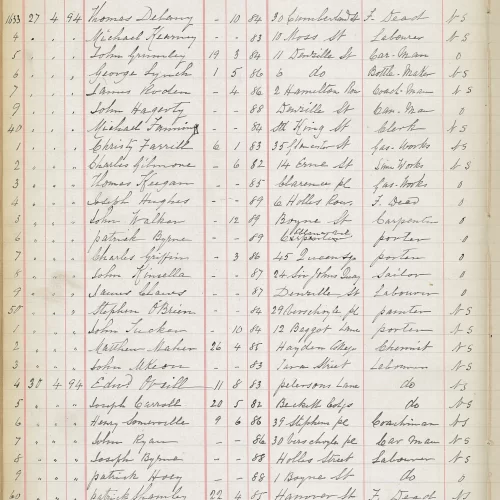 1633 27 4 94 Thomas Delany - 10 84 30 Cumberland St F. Dead N S
4 " " " Michael Kearney - - 83 10 Moss St Labourer N S
5 " " " John Grumley 19 3 84 11 Denzille St Car-Man 0
6 " " " George Lynch 1 5 86 6 do Bottle-Maker N S
7 " " " James Roden - 4 86 2 Hamilton Row Coach-Man N S
9 " " " John Hagerty - - 88 Denzille St Car-Man 0
40 " " " Michael - - 84 Sth King St Clerk N S
1 " " " Christy Farrell 6 1 83 35 Gas-Works N S
2 " " " Charles Gilmore - 6 82 14 Erne St Works N S
3 " " " Thomas Keegan - - 85 Clarence pl Gas-Works 0
4 " " " Joseph Hughes - - 89 6 Holles Row F. Dead 0
3 " " " John Walker - 12 89 Boyne St Carpenter 0
6 " " " Patrick Byrne - - 89 1 porter 0
7 " " " Charles Griffin - 3 86 45 Queen Sq porter 0
8 " " " John Kinsella - - 87 24 Sir Johns Quay Sailor 0
9 " " " James - - 87 Denzille St Labourer 0
50 " " " Stephen O'Brien - - 84 29 Verschoyle pl painter N S
1 " " " John Tucker - 10 84 12 Baggot Lane porter N S
2 " " " Matthew Maher 26 4 85 Chemist N S
3 " " " John McKeon - - 83 Tara Street Labourer N S
4 30 4 94 Edwd O'Neill 11 8 83 petersons Lane do N S
5 " " " Joseph Carroll 20 5 82 Becketts Cotgs do N S
6 " " " Henry Somerville 9 6 86 39 Stephen pl Coachman N S
7 " " " John Ryan - - 86 30 Verschoyle pl Car Man N S
8 " " " Joseph Byrne - - 88 Holles Street Labourer N S
9 " " " patrick Hoey - - 88 1 Boyne St do 0
60 " " " patrick 22 4 85 Hanover St F. Dead N S